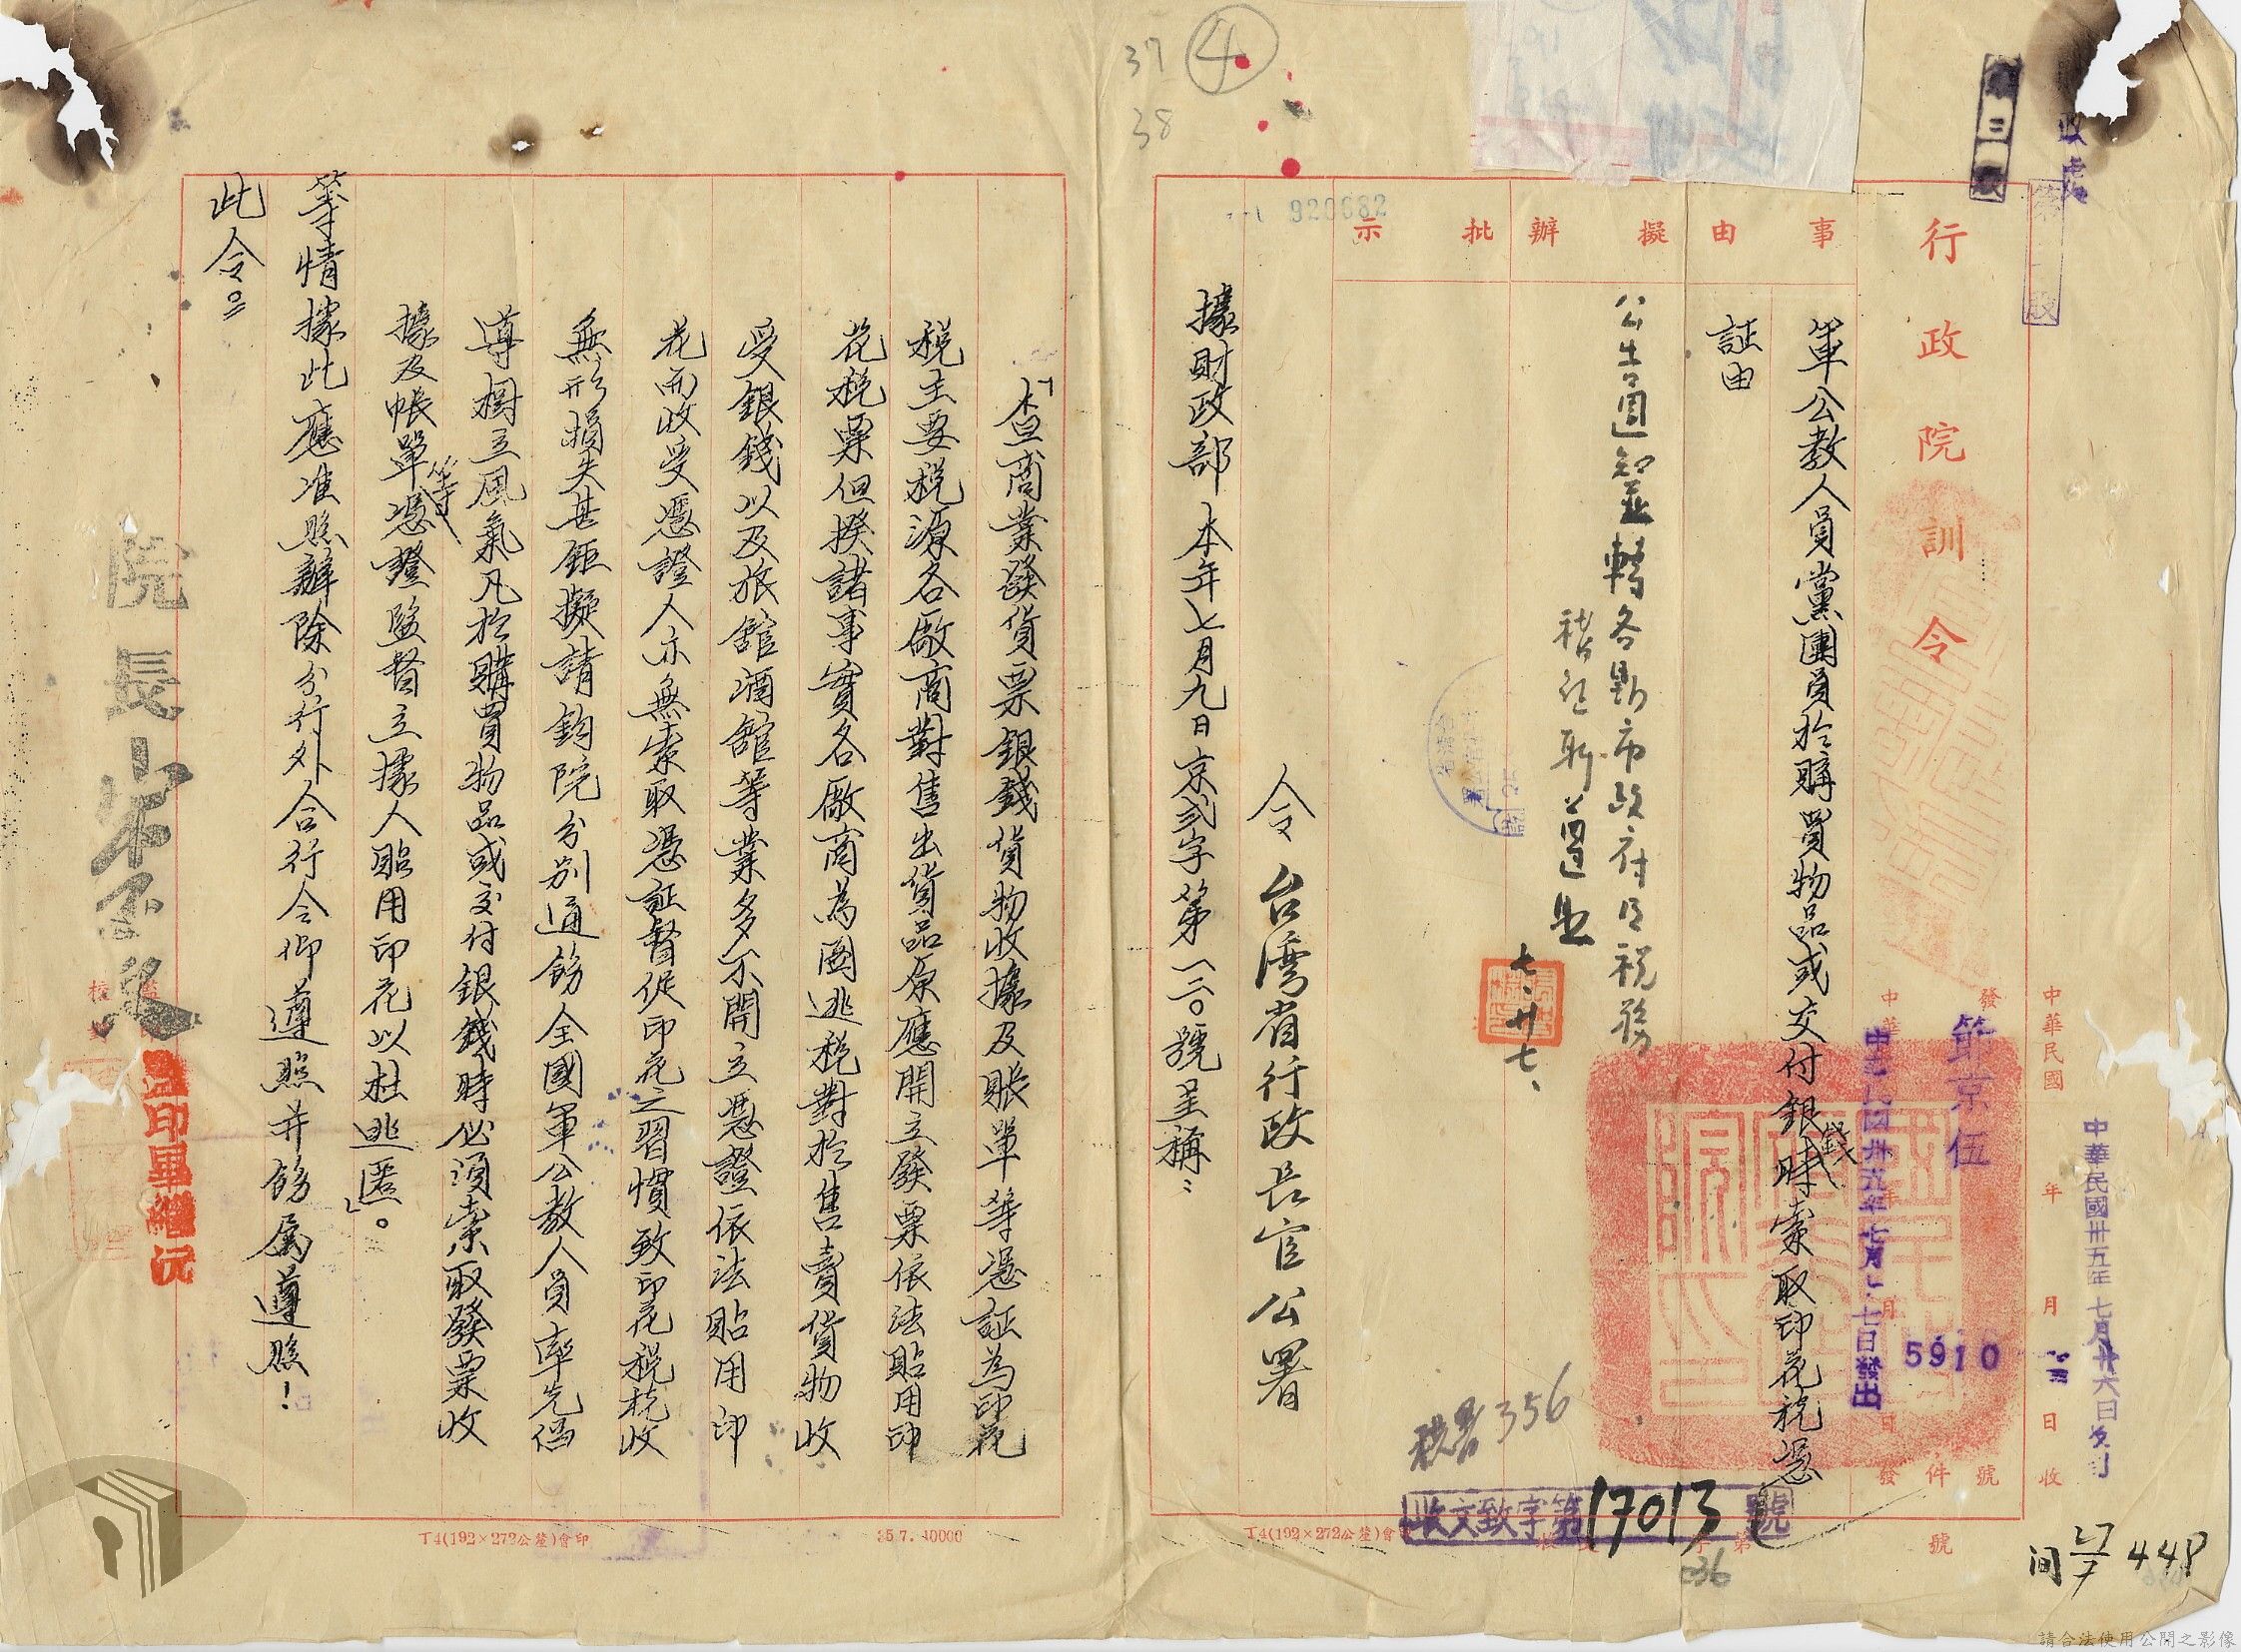 收處
第二
中華民國卅五年七月廿六日
中華民國 年 月 日收
行政院訓令
節京伍
5910
中華民國卅五年七月十七日發出
發 件 號
號
事由
擬辦
批示
軍公教人員黨團員於購買物品或交付銀錢時索取印花稅憑
証由
轉各縣市政府及稅務
七、廿七、
920682
令 台灣省行政長官公署
據財政部本年七月九日京弍字第一二〇號呈稱:
「查商業發貨票銀錢貨物收據及賬單等憑証為印花
稅主要稅源各廠商對售出貨品原應開立發票依法貼用印
花稅票但揆諸事實各廠商為圖逃稅對於售賣貨物收
受銀錢以及旅館酒館等業多不開立憑證依法貼用印
花而收受憑證人亦無索取憑証督促印花之習慣致印花稅稅收
無形損失甚鉅擬請鈞院分別通飭全國軍公教人員率先倡
導樹立風氣凡於購買物品或交付銀錢時必須索取發票收
據及帳單等憑證監督立據人貼用印花以杜逃匿」。
等情據此應准照辦除分行外合行令仰遵照并飭屬遵照!
此令。
院長宋子文
監印畢繼沅
校對
收文致字第17013號
稅署356
36
448
37
38
4
T4(192×272公釐)會印
35.7.40000
T4(192×272公釐)會印
請合法使用公開之影像